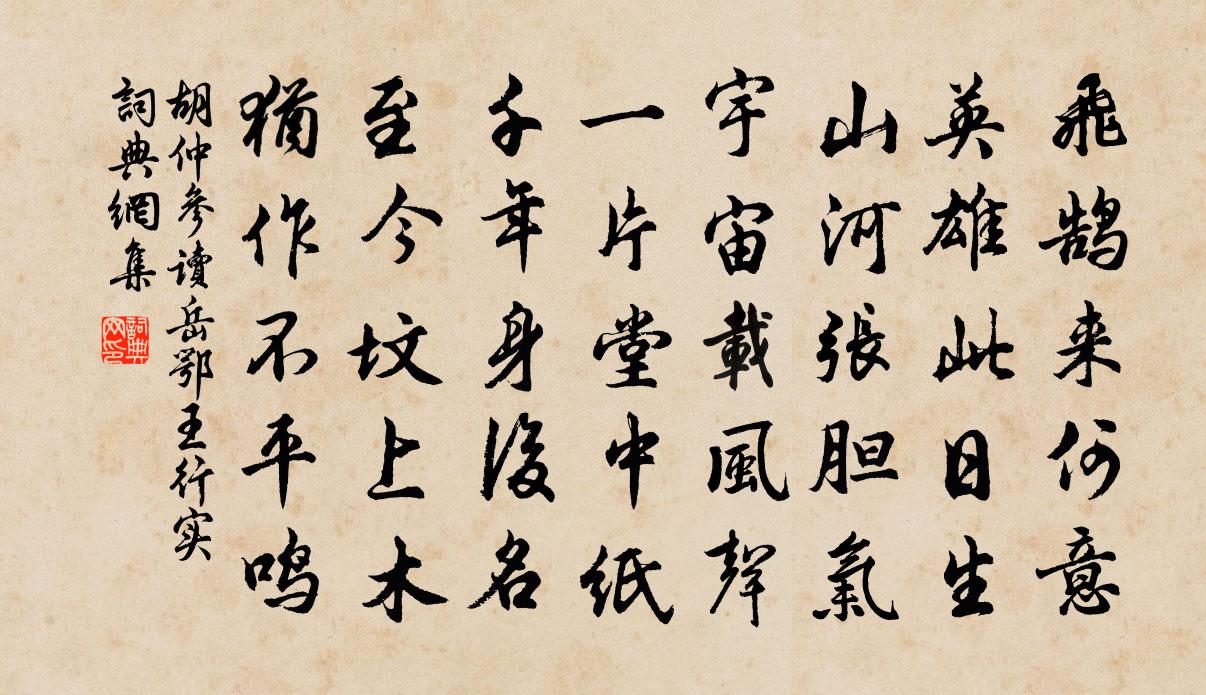 飛鵠来何意
英雄此日生
山河張胆氣
宇宙載風聲
一片堂中紙
千年身後名
至今墳上木
猶作不平鸣
胡仲參讀岳鄂王行实
詞典網集
詞典
网印